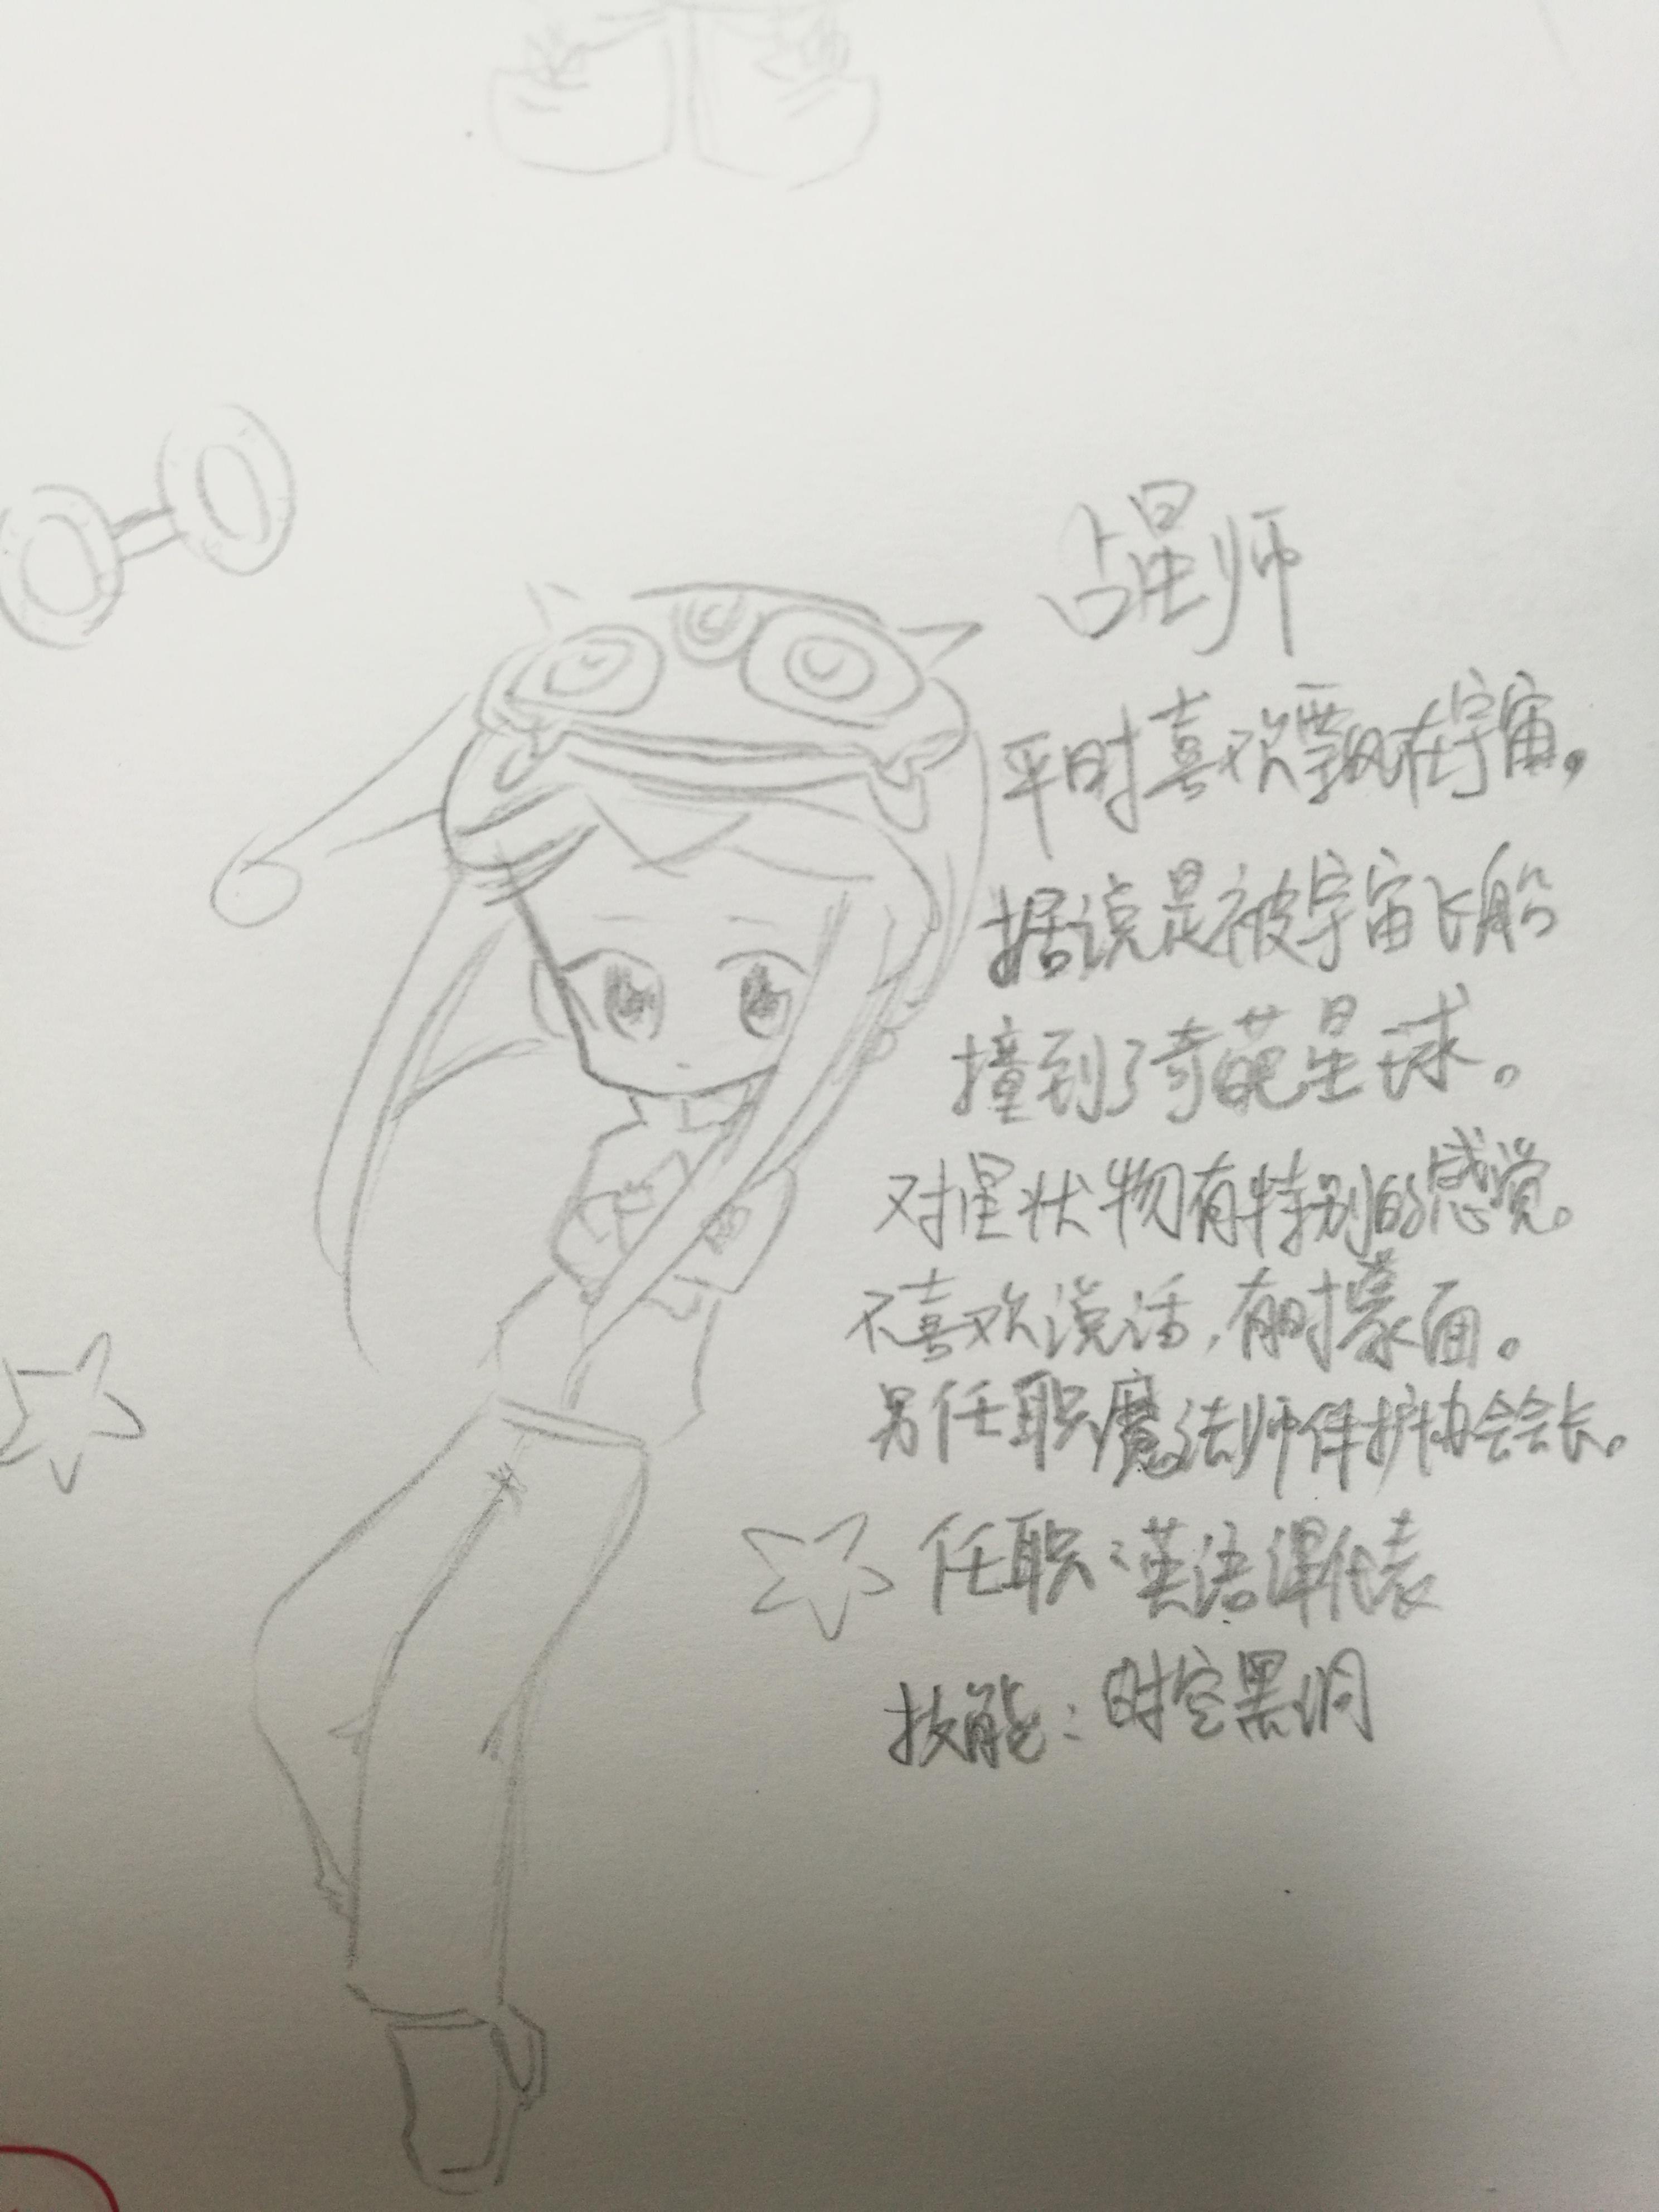 占星师
平时喜欢飘在宇宙。
据说是被宇宙飞船
撞到了奇葩星球。
对星状物有特别的感觉。
不喜欢说话,有时蒙面。
另任职魔法师保护协会会长。
任职:英语课代表
技能:时空黑洞